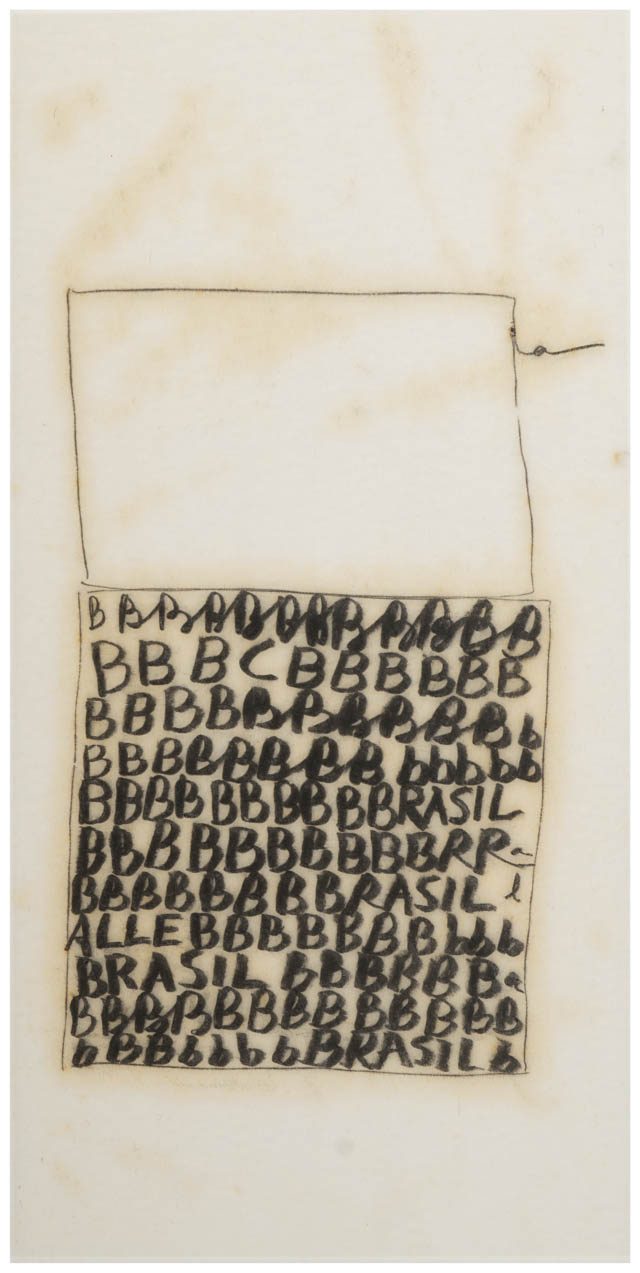 B B B B B B B B B B B B
B B B C B B B B B B
B B B B B B B B B B b
B B B B B B B B b b b b b
B B B B B B B B B BRASIL
B B B B B B B B B B R R a
B B B B B B B BRASIL l
ALLE B B B B B B B b b b
BRASIL B B B B B B a
B B B B B B B B B B B B B
b B B b b b b BRASIL b